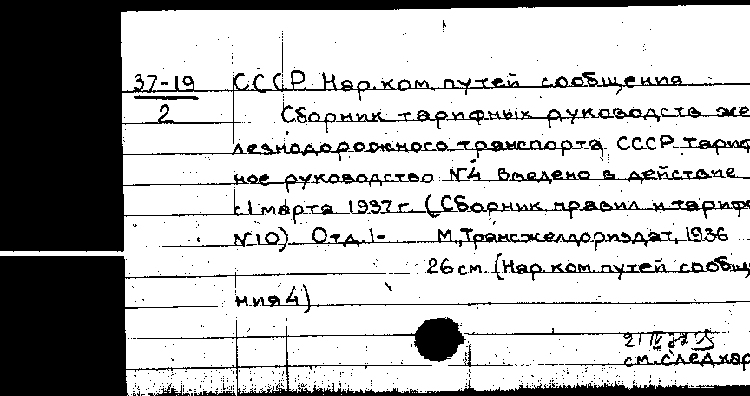 37-19 СССР Нар.ком.путей сообщения
2 Сборник тарифных руководств же
лезнодорожного транспорта СССР Тариф
ное руководство №4 Введено в действие
с 1 марта 1937 г. (Сборник правил и тариф
№10). Отд. 1- М., Трансжелдориздат, 1936
26 см. (Нар.ком.путей сообще
ния 4)
см. след кар